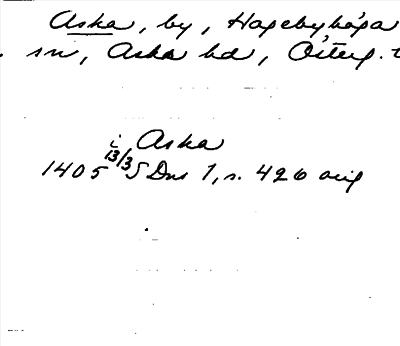 Aska, by, Hagebyhöga
sn, Aska hd, Österg.
i Aska
1405 13/3 SDns 1, s. 426 orig